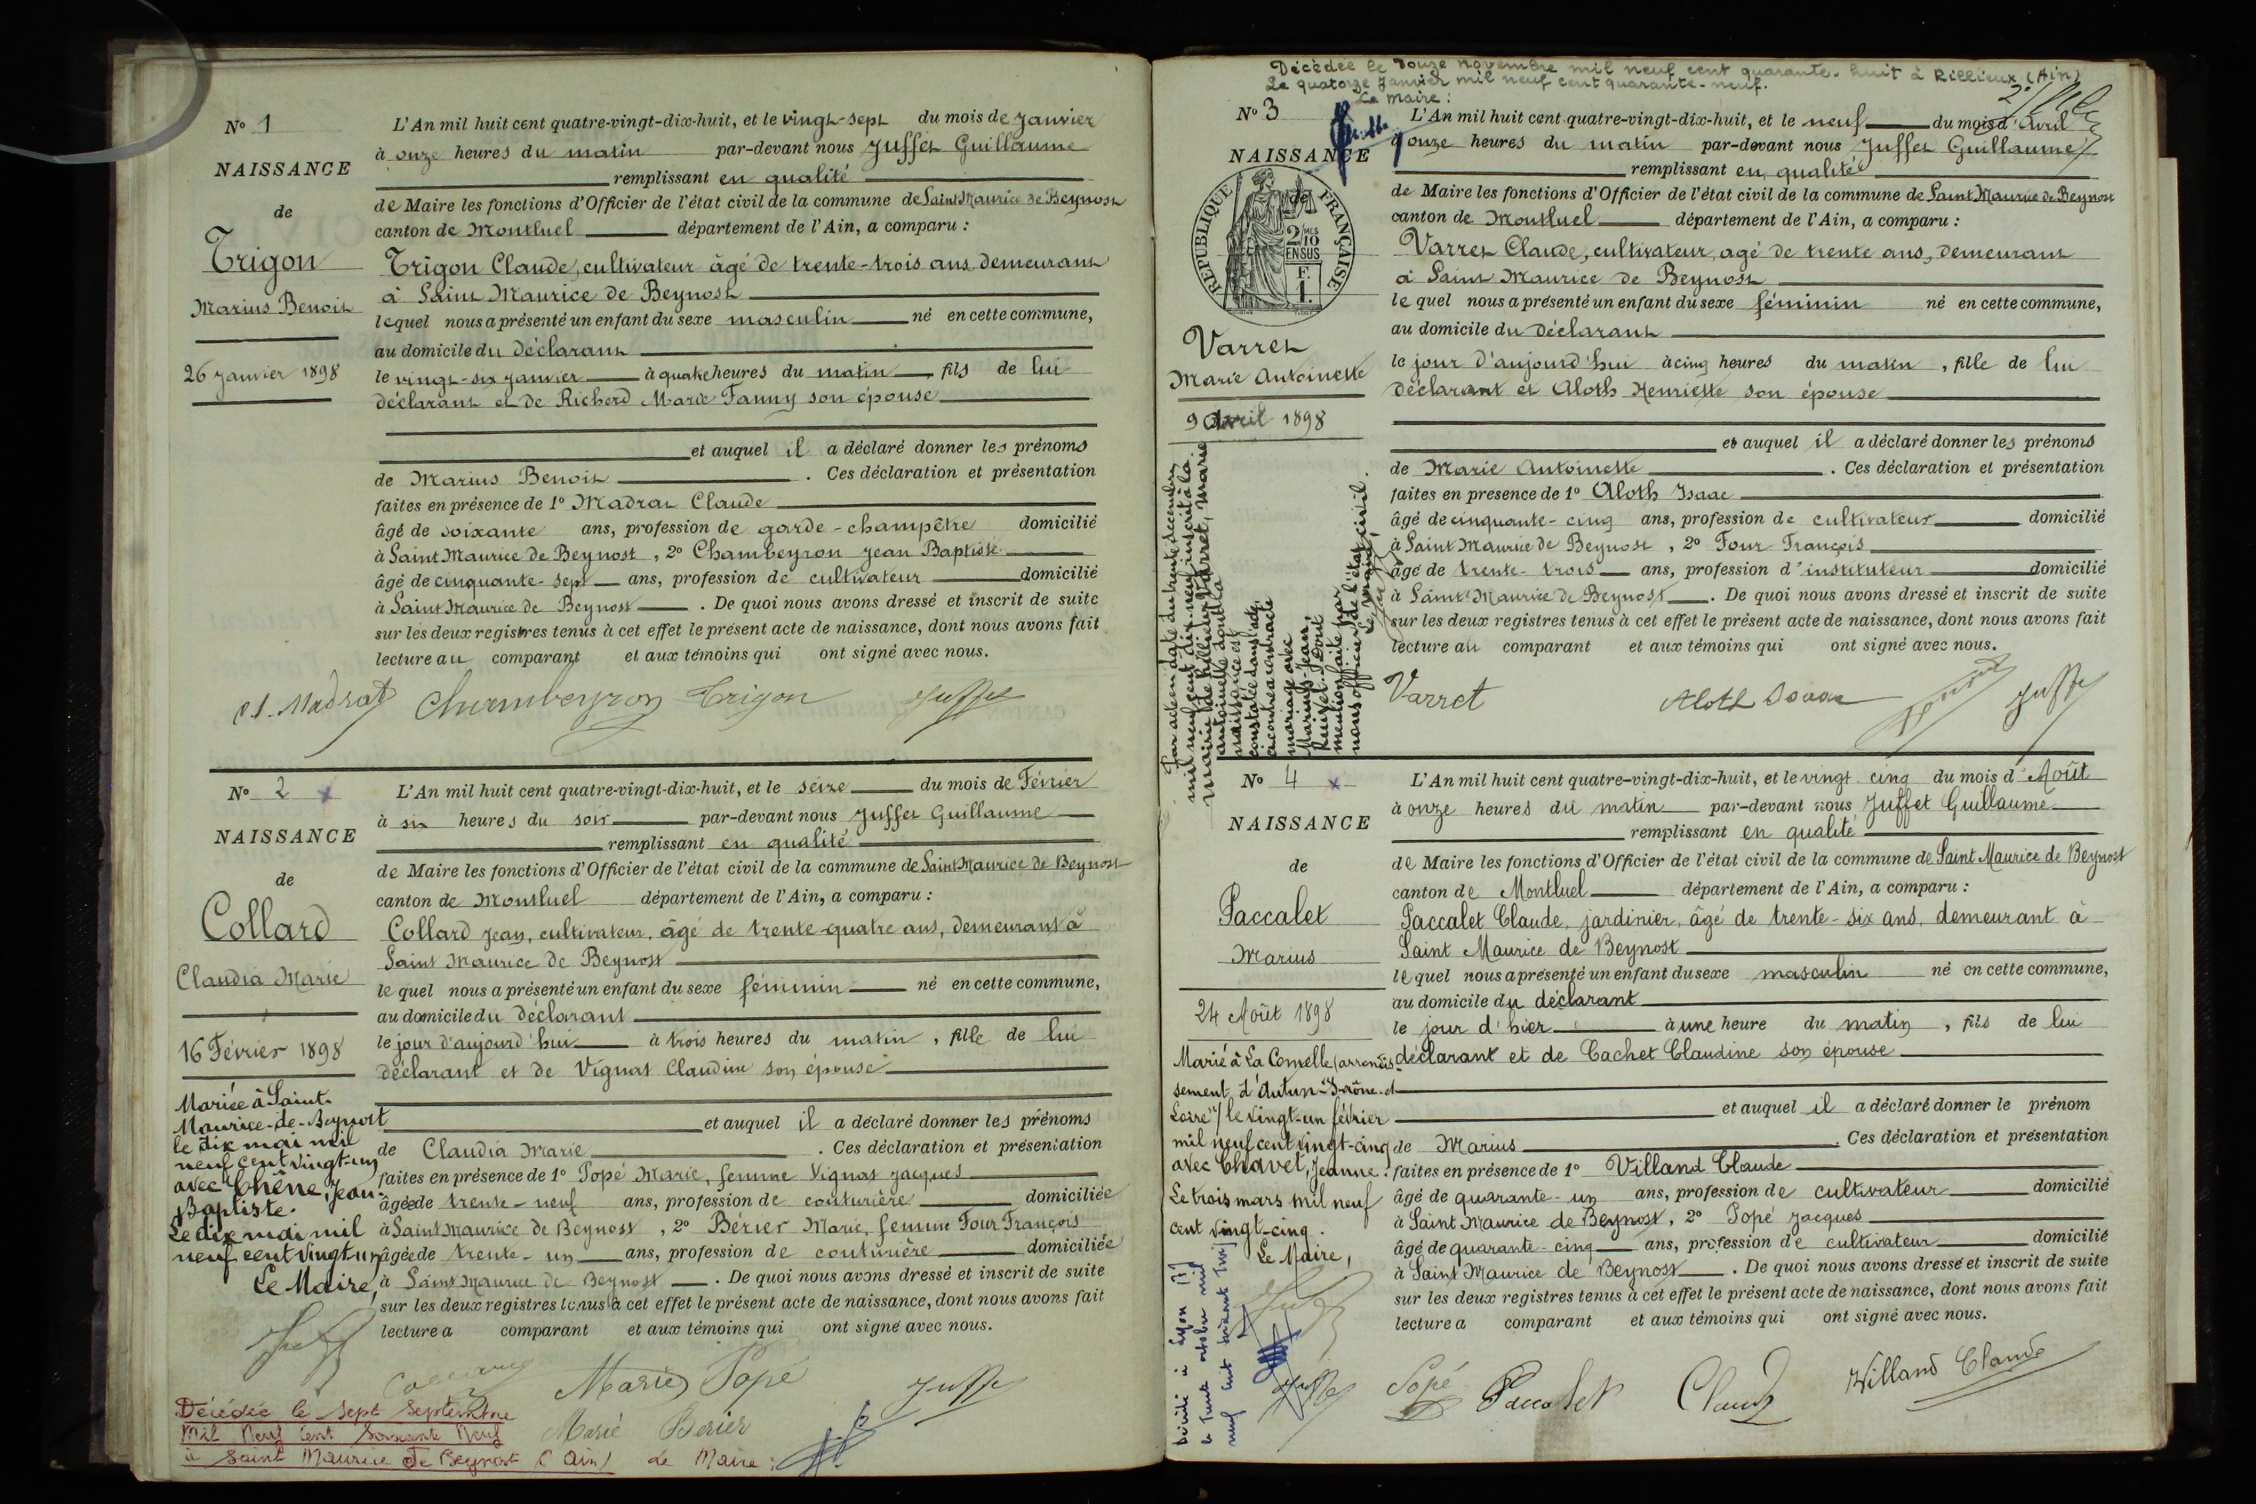 N° 1
NAISSANCE
de
Trigon
Marius Benoit
26 janvier 1898
L'An mil huit cent quatre-vingt-dix-huit, et le vingt-sept du mois de janvier
à onze heures du matin par-devant nous Juffet Guillaume
remplissant en qualité
de Maire les fonctions d'Officier de l'état civil de la commune de Saint Maurice de Beynost
canton de Montluel département de l'Ain, a comparu :
Trigon Claude, cultivateur âgé de trente-trois ans demeurant
à Saint Maurice de Beynost
lequel nous a présenté un enfant du sexe masculin né en cette commune,
au domicile du déclarant
le vingt-six janvier à quatre heures du matin, fils de lui
déclarant et de Richerd Marie Fanny son épouse
et auquel il a déclaré donner les prénoms
de Marius Benoit . Ces déclaration et présentation
faites en présence de 1° Madrat Claude
âgé de soixante ans, profession de garde-champêtre domicilié
à Saint Maurice de Beynost, 2° Chambeyron Jean Baptiste
âgé de cinquante-sept ans, profession de cultivateur domicilié
à Saint Maurice de Beynost . De quoi nous avons dressé et inscrit de suite
sur les deux registres tenus à cet effet le présent acte de naissance, dont nous avons fait
lecture au comparant et aux témoins qui ont signé avec nous.
Madrat Chambeyron Trigon Juffet
N° 2 x
NAISSANCE
de
Collard
Claudia Marie
16 Février 1898
Mariée à Saint-
Maurice-de-Beynost
le dix mai mil
neuf cent vingt-un
avec Chêne, Jean-
Baptiste.
Le dix mai mil
neuf cent vingt-un
Le Maire,
L'An mil huit cent quatre-vingt-dix-huit, et le seize du mois de Février
à six heures du soir par-devant nous Juffet Guillaume
remplissant en qualité
de Maire les fonctions d'Officier de l'état civil de la commune de Saint Maurice de Beynost
canton de Montluel département de l'Ain, a comparu :
Collard Jean, cultivateur, âgé de trente-quatre ans, demeurant à
Saint Maurice de Beynost
le quel nous a présenté un enfant du sexe féminin né en cette commune,
au domicile du déclarant
le jour d'aujourd'hui à trois heures du matin, fille de lui
déclarant et de Vignat Claudine son épouse
et auquel il a déclaré donner les prénoms
de Claudia Marie . Ces déclaration et présentation
faites en présence de 1° Popé Marie, femme Vignat Jacques
âgée de trente-neuf ans, profession de couturière domiciliée
à Saint Maurice de Beynost, 2° Bérier Marie, femme Four François
âgée de trente-un ans, profession de couturière domiciliée
à Saint Maurice de Beynost . De quoi nous avons dressé et inscrit de suite
sur les deux registres tenus à cet effet le présent acte de naissance, dont nous avons fait
lecture a comparant et aux témoins qui ont signé avec nous.
Marie Popé Juffet
Marie Berier
Décédée le sept septembre
mil neuf cent soixante neuf
à Saint Maurice de Beynost (Ain) Le Maire :
Décédée le douze novembre mil neuf cent quarante-huit à Rillieux (Ain)
Le quatorze janvier mil neuf cent quarante-neuf.
Le Maire :
N° 3
NAISSANCE
de
RÉPUBLIQUE FRANÇAISE
2/10 EN SUS
F. 1.
Varret
Marie Antoinette
9 avril 1898
Par acte en date du trente décembre
mil neuf cent dix-neuf inscrit à la
mairie de Rillieux, Varret, Marie
antoinette dont la
naissance est
constatée dans acte
ci contre a contracté
mariage avec
Marius-Jean
mention faite par
nous officier de l'état civil.
L'An mil huit cent quatre-vingt-dix-huit, et le neuf du mois d'Avril
à onze heures du matin par-devant nous Juffet Guillaume
remplissant en qualité
de Maire les fonctions d'Officier de l'état civil de la commune de Saint Maurice de Beynost
canton de Montluel département de l'Ain, a comparu :
Varret Claude, cultivateur, agé de trente ans, demeurant
à Saint Maurice de Beynost
le quel nous a présenté un enfant du sexe féminin né en cette commune,
au domicile du déclarant
le jour d'aujourd'hui à cinq heures du matin, fille de lui
déclarant et Aloth Henriette son épouse
et auquel il a déclaré donner les prénoms
de Marie Antoinette . Ces déclaration et présentation
faites en presence de 1° Aloth Isaac
âgé de cinquante-cinq ans, profession de cultivateur domicilié
à Saint Maurice de Beynost, 2° Four François
âgé de trente-trois ans, profession d'instituteur domicilié
à Saint Maurice de Beynost . De quoi nous avons dressé et inscrit de suite
sur les deux registres tenus à cet effet le présent acte de naissance, dont nous avons fait
lecture au comparant et aux témoins qui ont signé avec nous.
Varret Aloth Isaac Juffet
N° 4 x
NAISSANCE
de
Paccalet
Marius
24 Août 1898
Marié à La Comelle (arrondis-
sement d'Autun - Saône-et-
Loire) le vingt-un février
mil neuf cent vingt-cinq
avec Chavet, Jeanne.
Le trois mars mil neuf
cent vingt-cinq.
Le Maire,
L'An mil huit cent quatre-vingt-dix-huit, et le vingt cinq du mois d'Août
à onze heures du matin par-devant nous Juffet Guillaume
remplissant en qualité
de Maire les fonctions d'Officier de l'état civil de la commune de Saint Maurice de Beynost
canton de Montluel département de l'Ain, a comparu :
Paccalet Claude, jardinier, âgé de trente-six ans, demeurant à
Saint Maurice de Beynost
le quel nous a présenté un enfant du sexe masculin né en cette commune,
au domicile du déclarant
le jour d'hier à une heure du matin, fils de lui
déclarant et de Cachet Claudine son épouse
et auquel il a déclaré donner le prénom
de Marius . Ces déclaration et présentation
faites en présence de 1° Villand Claude
âgé de quarante-un ans, profession de cultivateur domicilié
à Saint Maurice de Beynost, 2° Popé Jacques
âgé de quarante-cinq ans, profession de cultivateur domicilié
à Saint Maurice de Beynost . De quoi nous avons dressé et inscrit de suite
sur les deux registres tenus à cet effet le présent acte de naissance, dont nous avons fait
lecture a comparant et aux témoins qui ont signé avec nous.
Popé Paccalet Claude Villand Claude
Décédé à Lyon
le trente octobre mil
neuf cent soixante trois